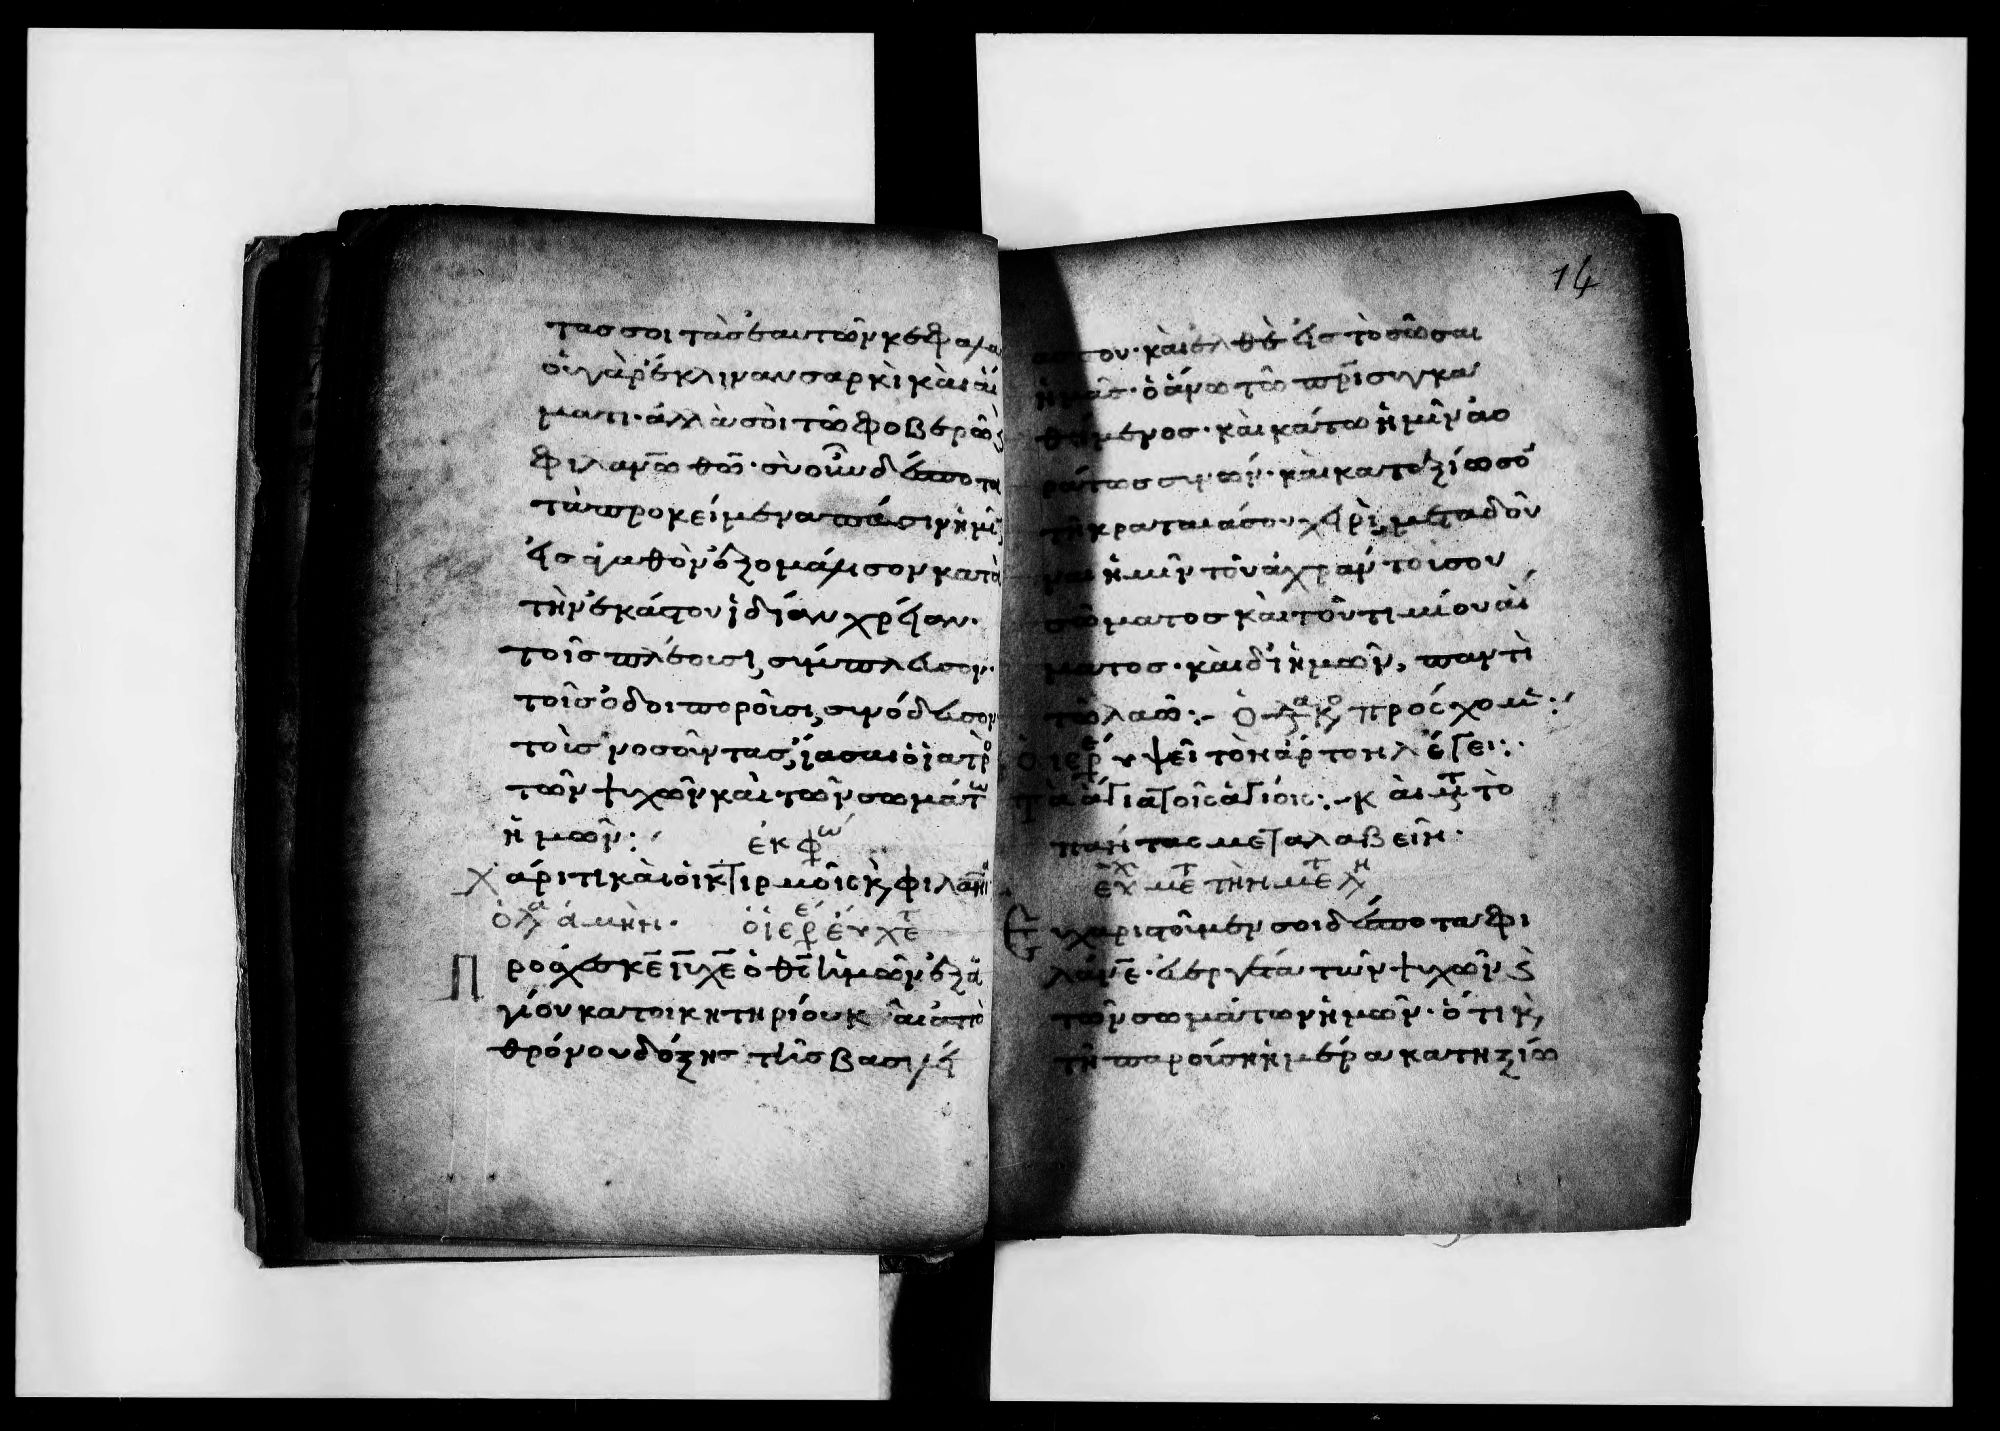 τας σοι τὰς ἑαυτῶν κεφαλὰ
οὐ γὰρ ἔκλιναν σαρκὶ καὶ αἵ
ματι· ἀλλὰ σοὶ τῶ φοβερῶ
φιλαν̅ω θω̅· σὺ οὖν δέσποτα
τὰ προκείμενα πᾶσιν ἡμῖ
εἰς ἀγαθὸν ἐξομάλισον κατὰ
τὴν ἑκάστου ἰδίαν χρείαν·
τοῖς πλέουσι, σύμπλευσον·
τοῖς ὁδοιποροῦσι, συνόδευσον
τοὺς νοσοῦντας, ἴασαι ὁ ἰατρὸ
τῶν ψυχῶν καὶ τῶν σωμάτω
ἡμῶν: ἐκφω
Χάριτι καὶ οἰκτιρμοῖς κ, φιλαν̅
ὁ λα ἀμήν· ὁ ἱερε εύχετ
Πρόσχες κε̅ ιυ̅ χε̅ ὁ θς̅ ἡμῶν ἐξ ἁ
γίου κατοικητηρίου κ αὶ ἀπὸ
θρόνου δόξης τῆς βασιλεί
14
ας του· καὶ ἐλθὲ εἰς τὸ σῶσαι
ἡμᾶς· ὁ ἄνω τῶ πρ̅ι συγκα
θήμενος· καὶ κάτω ἡμῖν ἀο
ράτως συνών· καὶ καταξίωσο
τῆ κραταιά σου χειρὶ, μεταδοῦ
ναι ἡμῖν τοῦ ἀχράντου σου
σώματος καὶ τοῦ τιμίου αἵ
ματος· καὶ δι ἡμῶν, παντὶ
τῶ λαῶ:– Ὁ διακο πρόσχομε:
ὁ ιερε ὑψεῖ τὸν ἄρτον λέγει:·
Τὰ ἅγια τοῖς ἁγίοις:– κ αὶ μετ τὸ
πάντας μεταλαβεῖν·
ευχ μετ τὴν μετλη
Εὐχαριστοῦμέν σοι δέσποτα φι
λάν̅ε· ἐυεργέτα τῶν ψυχῶν κ
τῶν σωμάτων ἡμῶν· ὅτι κ,
τῆ παρούση ἡμέρα κατηξίω